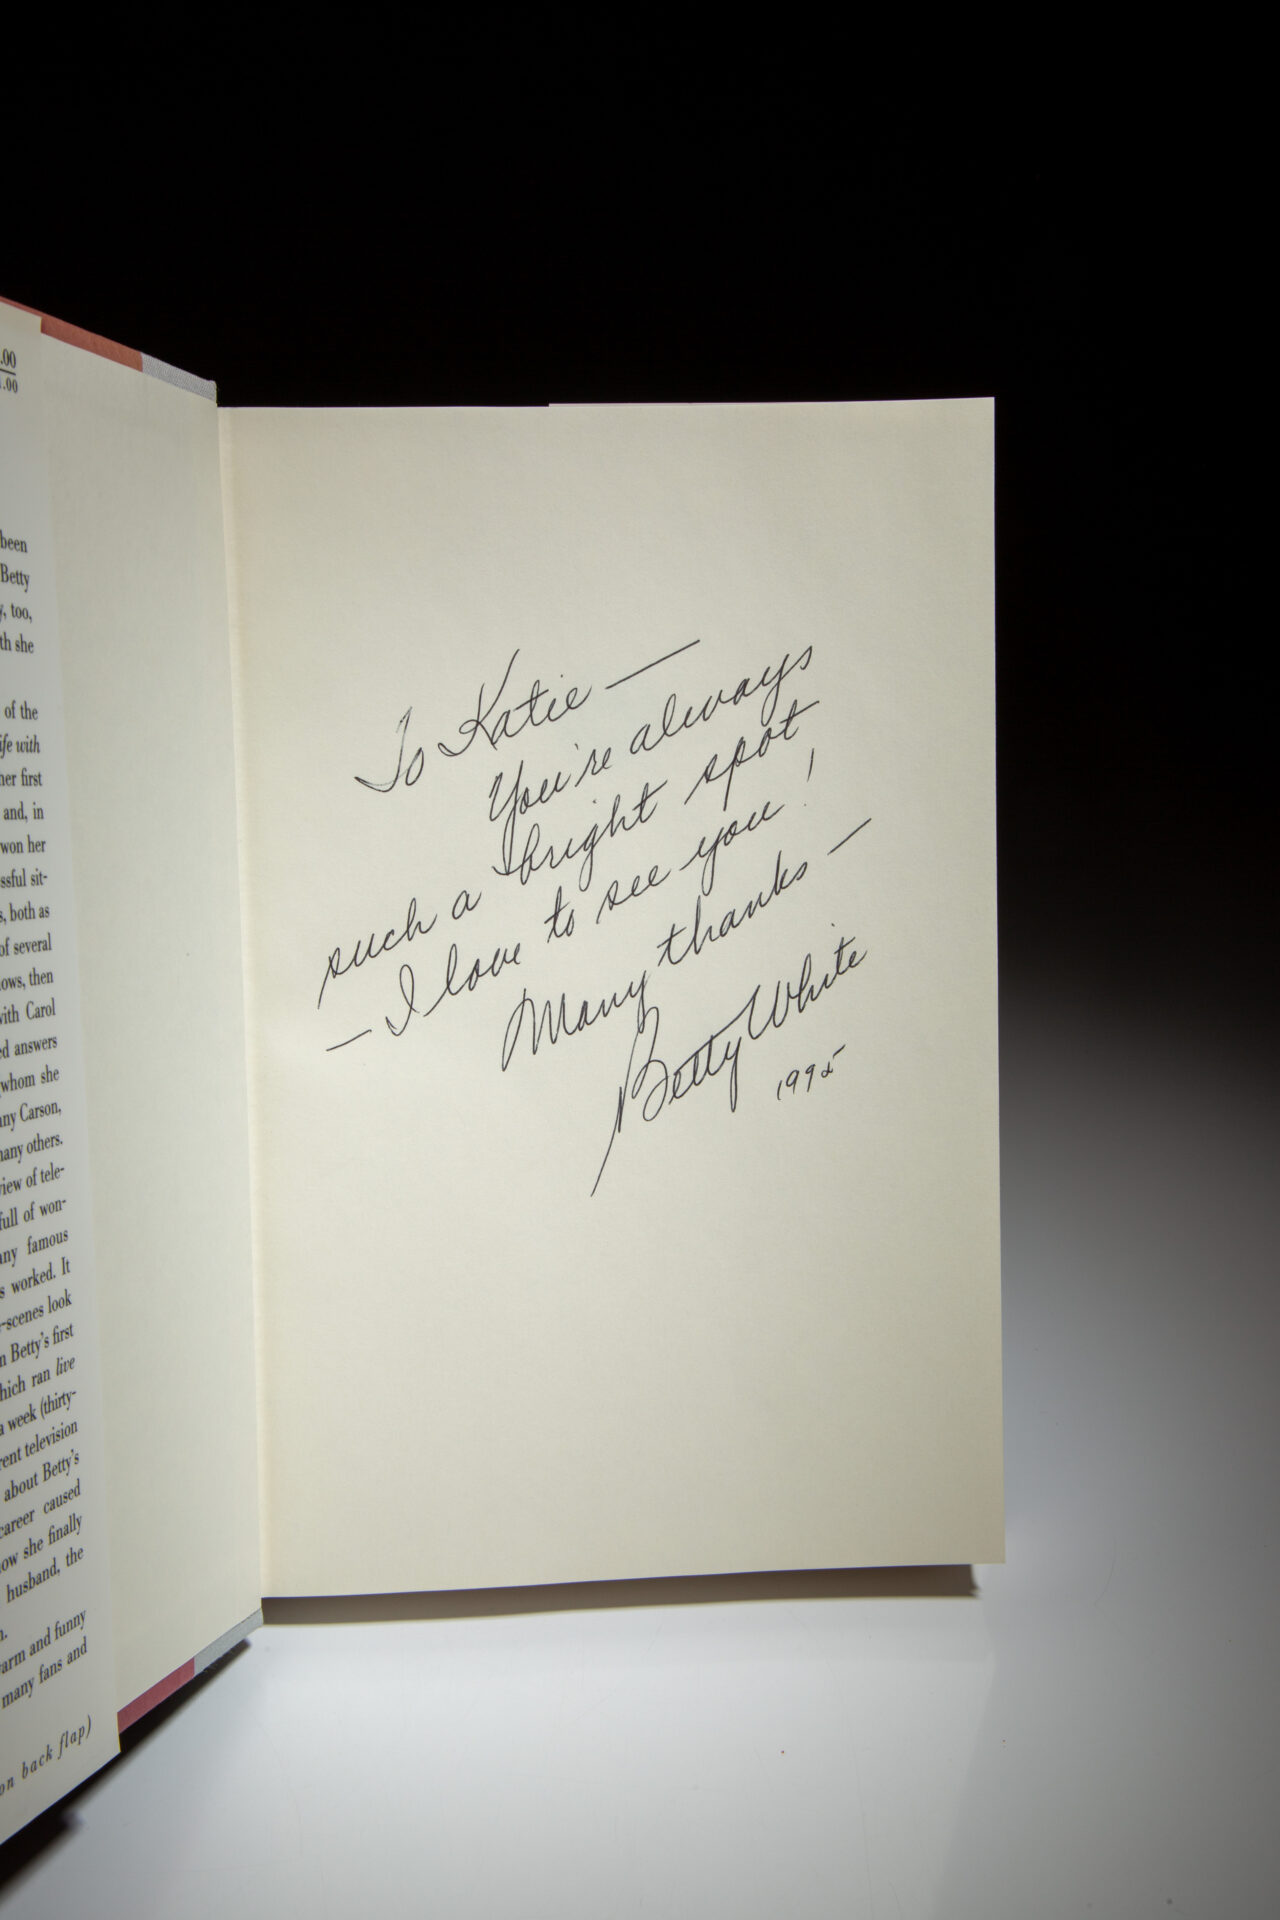 .00
.00
been
Betty
y, too,
th she
of the
ife with
her first
and, in
won her
ssful sit-
s, both as
of several
ows, then
with Carol
ed answers
whom she
nny Carson,
many others.
view of tele-
full of won-
any famous
s worked. It
-scenes look
n Betty's first
hich ran live
a week (thirty-
rent television
about Betty's
career caused
ow she finally
husband, the
n.
arm and funny
many fans and
on back flap)
To Katie —
You're always
such a bright spot
— I love to see you!
Many thanks —
Betty White
1995